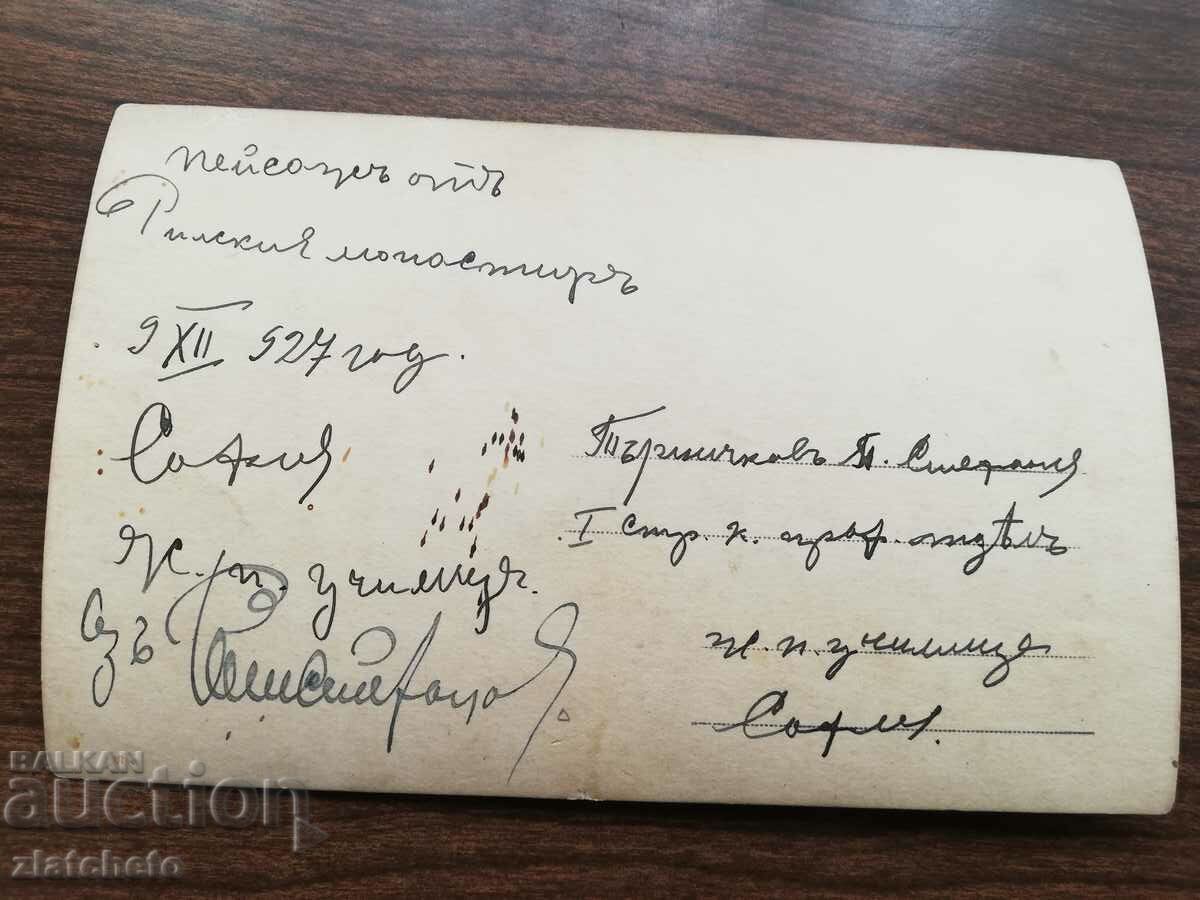 пейсажъ отъ
Рилския монастиръ
9 XII 927 год.
София
Ж. п. училище.
Азъ
Търничковъ П. Стефания
I стр. к. отдѣлъ
ж. п. училище
София.
BALKAN
auction
zlatcheto